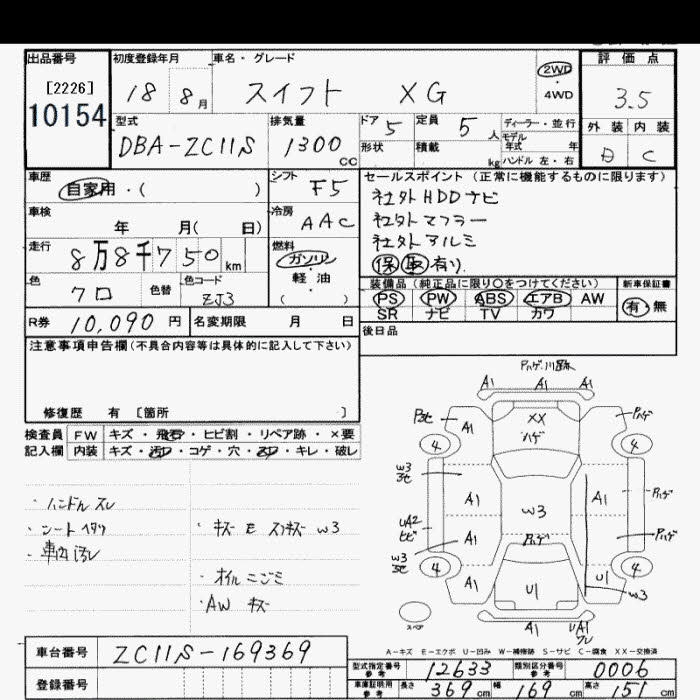 出品番号
[2226]
10154
初度登録年月
18 8月
車名・グレード
スイフト XG
2WD
・4WD
評価点
3.5
外装 内装
D C
型式
DBA-ZC11S
排気量
1300 CC
ドア 5
定員 5 人
形状
積載 kg
ディーラー・並行
モデル
年式 年
ハンドル 左・右
車歴
自家用・( )
シフト
F5
車検
年 月( 日)
冷房
AAC
走行
8万8千750 km
燃料
ガソリン
・軽油
( )
色
クロ
色替
色コード
ZJ3
R券 10,090 円
名変期限 月 日
セールスポイント(正常に機能するものに限ります)
社外HDDナビ
社外マフラー
社外アルミ
保 取 有り
装備品(純正品に限り○をつけてください)
PS PW ABS エアB AW
SR ナビ TV カワ
新車保証書
有・無
後日品
注意事項申告欄(不具合内容等は具体的に記入して下さい)
修復歴 有 [箇所 ]
検査員
記入欄
FW キズ・飛石・ヒビ割・リペア跡・×要
内装 キズ・汚れ・コゲ・穴・スレ・キレ・破レ
・ハンドルスレ
・シートヘタリ
・車内汚レ
・キズ E スリキズ W3
・オイルニごミ
・AW キズ
Pハゲ
A1 A1 A1
A1
XX
ハゲ
Pハゲ
4 4
W3
A1
W3
A1
Pハゲ
UA2
ヒビ
W3
A1
Pハゲ
Pハゲ
4 4
A1
U1
U1
W3
スペア
A1
UA1
A-キズ E-エクボ U-凹み W-補修跡 S-サビ C-腐食 XX-交換済
車台番号 ZC11S-169369
登録番号
型式指定番号
参考
12633
類別区分番号
参考
0006
車庫証明用
参考
長さ 369 cm 幅 169 cm 高さ 151 cm